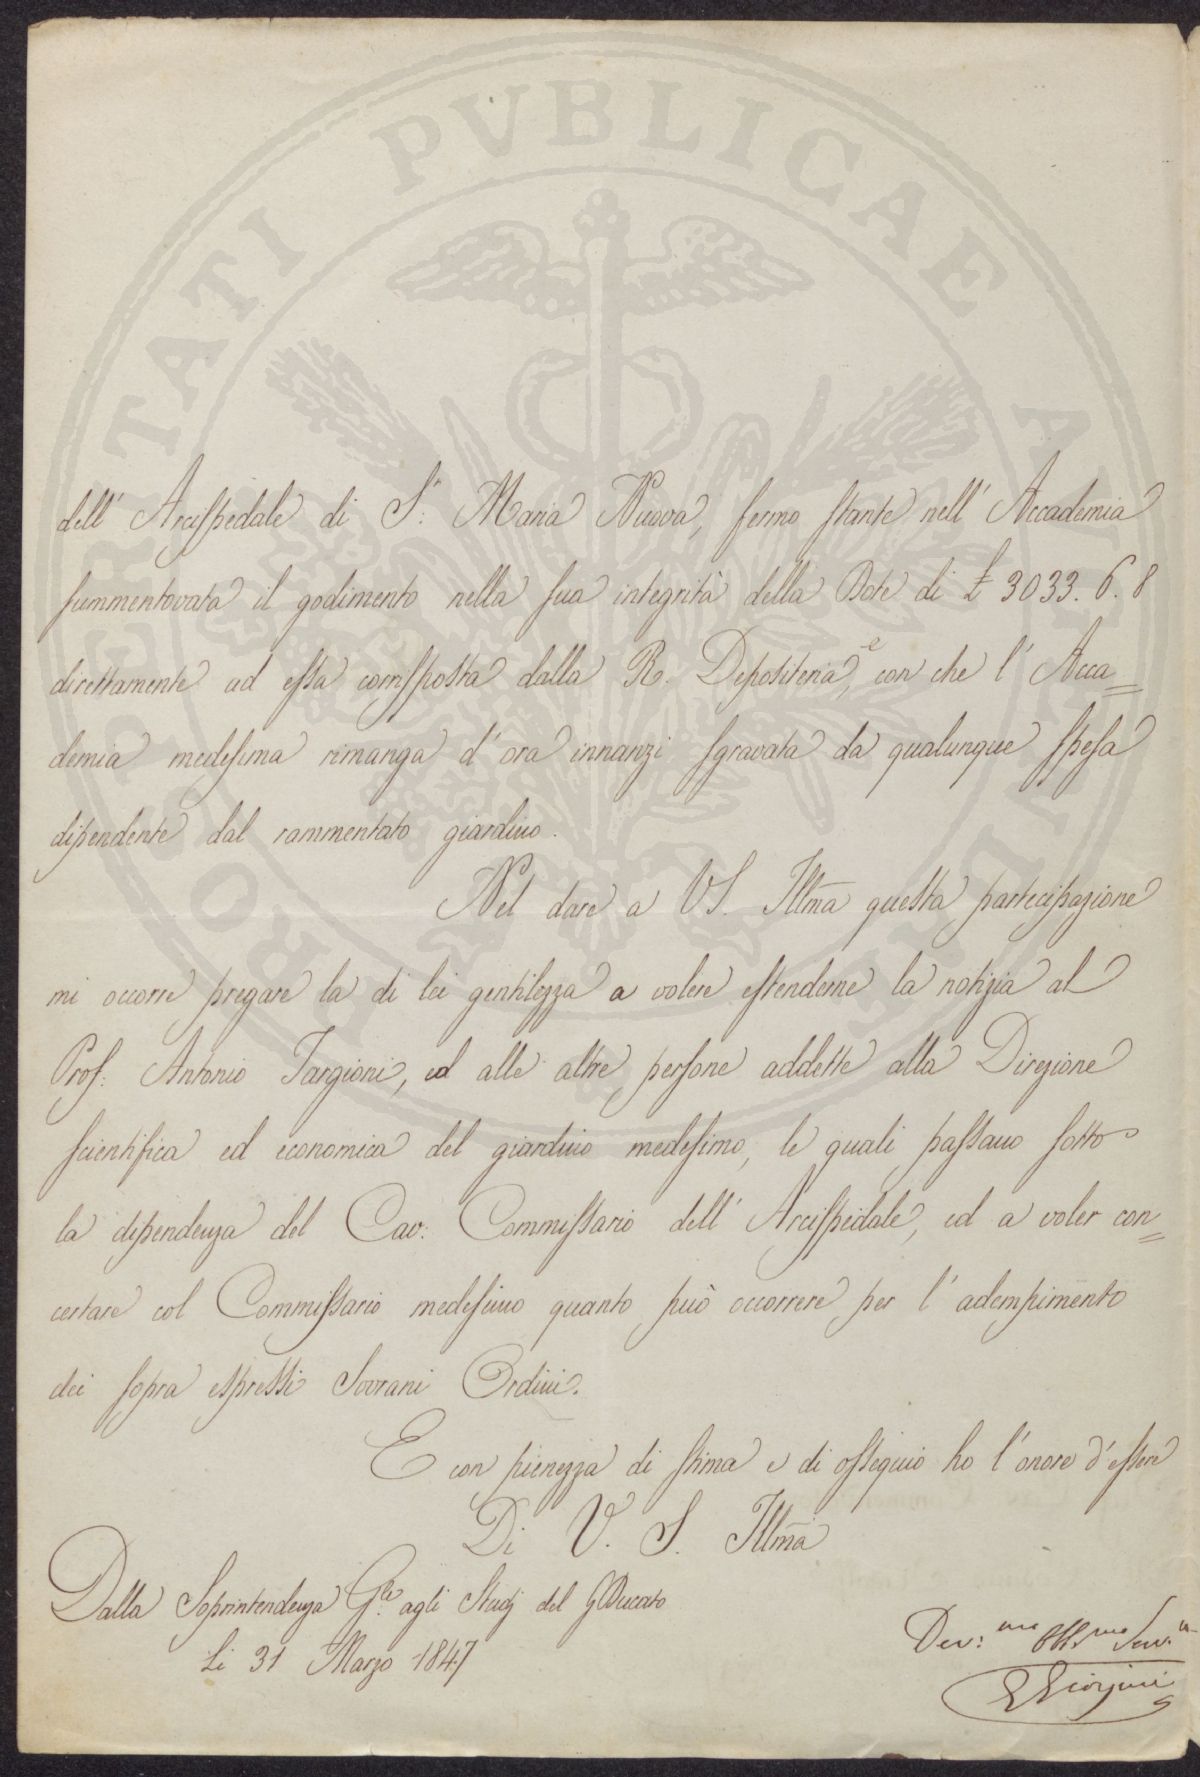 dell' Arcispedale di S.ª Maria Nuova, fermo stante nell' Accademia
summentovata il godimento nella sua integrità della Dote di £ 3033. 6. 8
direttamente ad essa corrisposta dalla R. Depositeria, e con che l' Acca=
demia medesima rimanga d' ora innanzi sgravata da qualunque spesa
dipendente dal rammentato giardino.
Nel dare a VS. Illma questa partecipazione
mi occorre pregare la di lei gentilezza a volere estenderne la notizia al
Prof: Antonio Targioni, ed alle altre persone addette alla Direzione
scientifica ed economica del giardino medesimo, le quali passano sotto
la dipendenza del Cav: Commissario dell' Arcispedale, ed a voler con=
certare col Commissario medesimo quanto può occorrere per l' adempimento
dei sopra espressi Sovrani Ordini.
E con pienezza di stima e di ossequio ho l' onore d' essere
Di V. S. Illma
Dalla Soprintendenza Gle agli Studj del GDucato
Li 31 Marzo 1847
Dev:mo Obb.mo Serv.e
Giorgini
PROSPERITATI PVBLICAE AVGENDAE